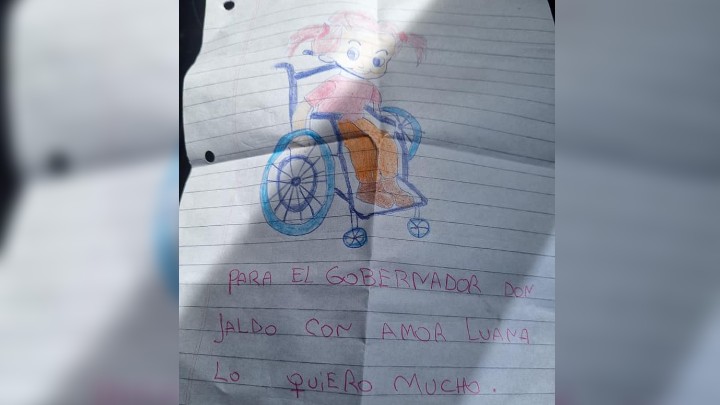 PARA EL GOBERNADOR DON
JALDO CON AMOR LUANA
LO QUIERO MUCHO.